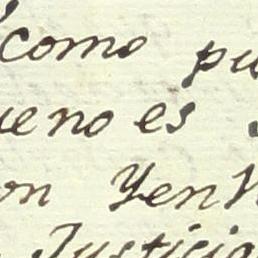 como pu
ueno es
on Yen
Justicia